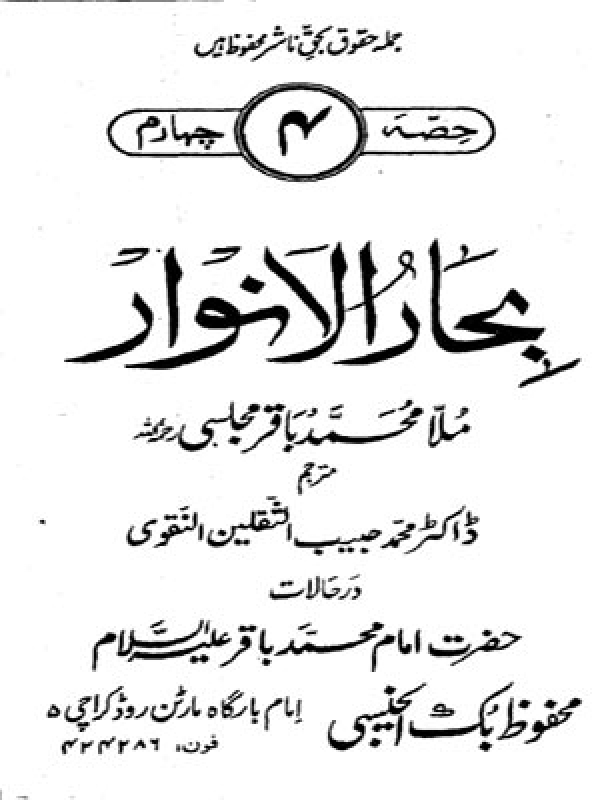 جملہ حقوق بحق ناشر محفوظ ہیں
حصّہ ۴ چہارم
بحارُ الانوار
مُلّا محمّد باقر مجلسی رحمۃ اللہ
مترجم
ڈاکٹر محمد حبیب الثقلین النقوی
در حالات
حضرت امام محمّد باقر علیہ السلام
محفوظ بک ایجنسی
امام بارگاہ مارٹن روڈ کراچی ۵
فون: ۴۲۴۲۸۶